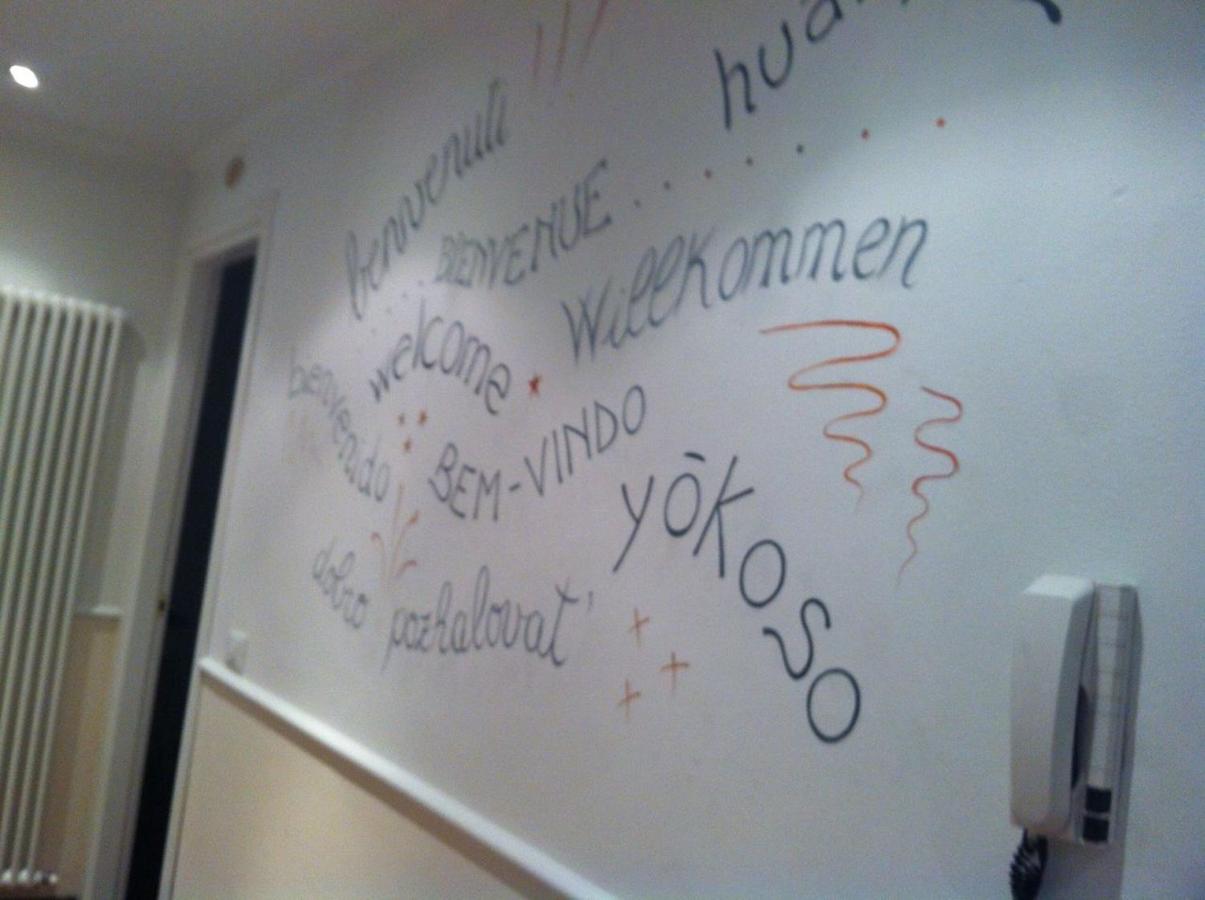 benvenuti
BIENVENUE
Willkommen
welcome
bienvenido
BEM-VINDO
yōkoso
dobro
pozhalovat'